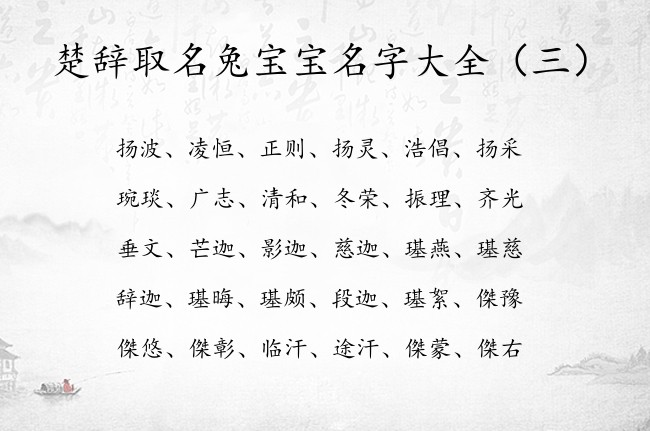 楚辞取名兔宝宝名字大全（三）
扬波、凌恒、正则、扬灵、浩倡、扬采
琬琰、广志、清和、冬荣、振理、齐光
垂文、芒迦、影迦、慈迦、璂燕、璂慈
辞迦、璂晦、璂颇、段迦、璂絮、傑豫
傑悠、傑彰、临汗、途汗、傑蒙、傑右